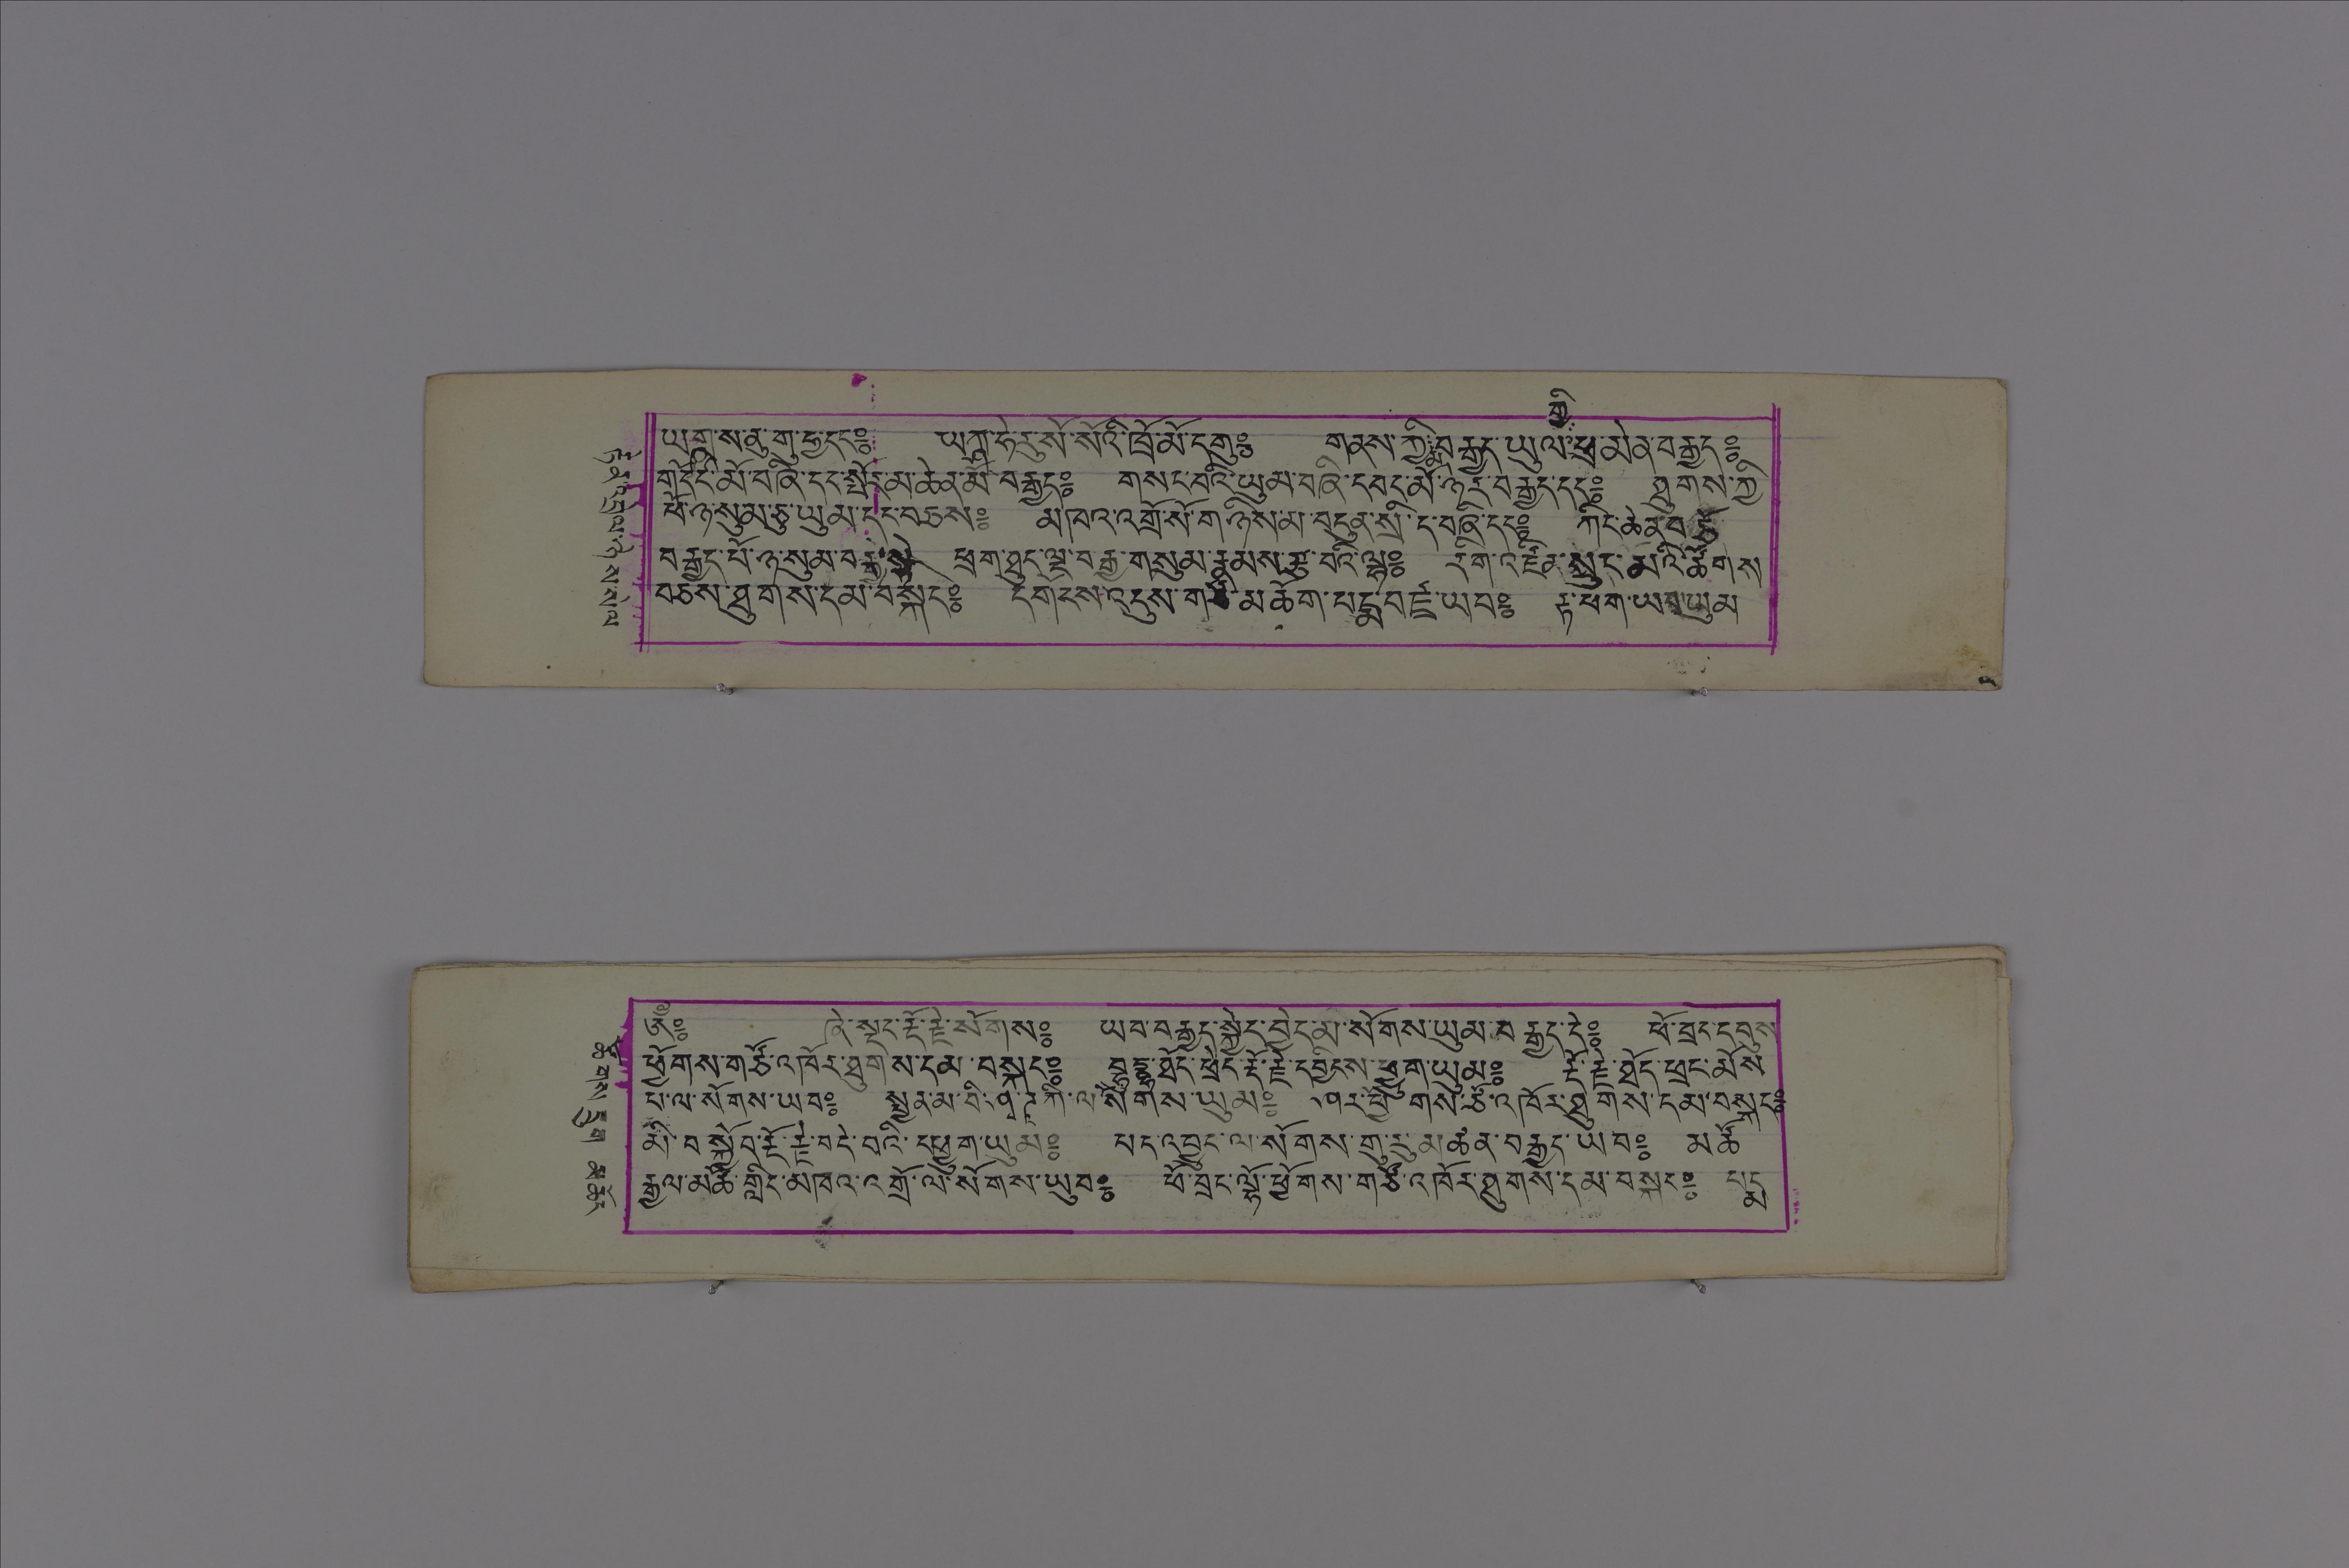 ཡཀྵ་ས་ནུ་གུ་ཧྱ་དང༔ ཡཀྵ་ཧེ་རུ་སོ་སོའི་ཁྲོ་མོ་དགུ༔ གནས་ཀྱི་བརྒྱད་ཡུལ་ཕྲ་མེན་བརྒྱད༔
གདོང་མོ་བཞི་དང་སྤྱོར་མ་ཆེན་མོ་བརྒྱད༔ གསང་བའི་ཡུམ་བཞི་དབང་མོ་ཉེར་བརྒྱད་དང༔ ཐུགས་ཀྱི
ཕོ་ཉ་སུམ་ཅུ་ཡུམ་དང་བཅས༔ མཁའ་འགྲོ་སོ་གཉིས་མ་བདུན་སྲིང་བཞི་དང༔ ཀིང་ཆེན་བ
བརྒྱད་པོ་ཉ་སུམ་བརྒྱ་སྡེ ཕྲག་ཐུང་ལྔ་བརྒྱ་གསུམ་རྣམས་རྒྱུ་བའི་ལྷ༔ རིག་འཛིན་སྲུང་མའི་ཚོགས
བཅས་ཐུགས་དམ་བསྐང༔ དགོངས་འདུས་གཙོ་མཆོག་པདྨ་བཛྲ་ཡབ༔ རྟ་ཕག་ཡབ་ཡུམ
༄༔ ཞེ་སྡང་རྡོ་རྗེ་སོགས༔ ཡབ་བརྒྱད་སྐྱེང་བྱེང་མ་སོགས་ཡུམ་བརྒྱད་དེ༔ ཕོ་བྲང་དབུས
ཕྱོགས་གཙོ་འཁོར་ཐུགས་དམ་བསྐང༔ བུདྡྷ་ཐོད་ཕྲེང་རྡོ་རྗེ་དབྱིངས་ཕྱུག་ཡུམ༔ རྡོ་རྗེ་ཐོད་ཕྲང་མོས
པ་ལ་སོགས་ཡབ༔ སྤྱན་མ་བི་ཤུདྡྷ་ཀི་ལ་སོགས་ཡུམ༔ ཤར་ཕྱོགས་ཙོ་འཁོར་ཐུགས་དམ་བསྐང༔
མི་བསྐྱོབ་རྡོ་རྗེ་བདེ་བའི་དཔྱུག་ཡུམ༔ པད་འབྱུང་ལ་སོགས་གུ་རུ་མཚན་བརྒྱད་ཡབ༔ མཚོ
རྒྱལ་མཚོ་གླིང་མཁའ་འགྲོ་ལ་སོགས་ཡུབ༔ ཕོ་བྲང་ལྷོ་ཕྱོགས་གཙོ་འཁོར་ཐུགས་དམ་བསྐང༔ པདྨ